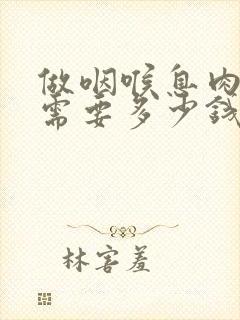 做咽喉息肉
需要多少钱
林害羞